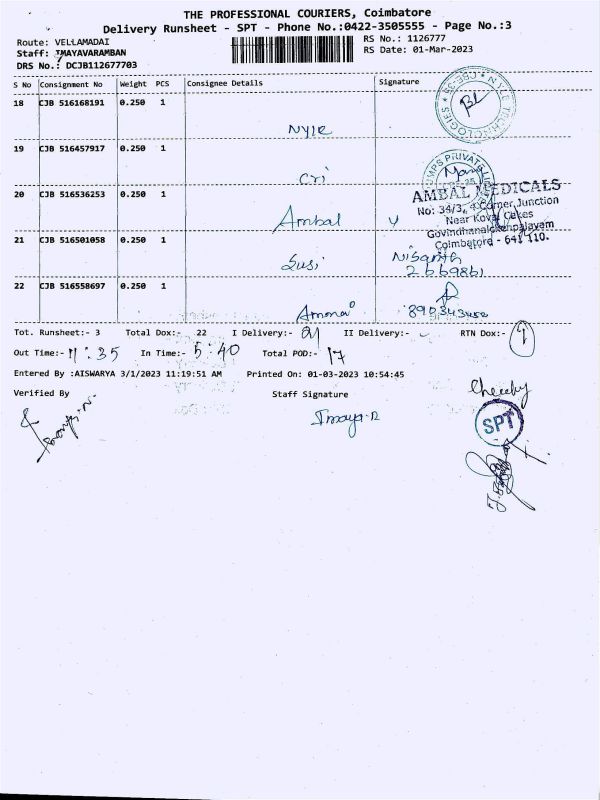 THE PROFESSIONAL COURIERS, Coimbatore
Delivery Runsheet - SPT - Phone No.:0422-3505555 - Page No.:3
Route: VELLAMADAI
RS No.: 1126777
Staff: IMAYAVARAMBAN
RS Date: 01-Mar-2023
DRS No.: DCJB112677703
S No Consignment No Weight PCS Consignee Details Signature
18 CJB 516168191 0.250 1 Nyle
19 CJB 516457917 0.250 1 Cri
20 CJB 516536253 0.250 1 Ambal
AMBAL MEDICALS
No: 34/3, 4 Corner Junction
Near Kovai Cakes
Govindhanaickenpalayam
Coimbatore - 641 110.
21 CJB 516501058 0.250 1 Susi Nisanth
2669861
22 CJB 516558697 0.250 1 Amma
Tot. Runsheet:- 3 Total Dox:- 22 I Delivery:- 21 II Delivery:- RTN Dox:- 1
Out Time:- 11:35 In Time:- 5.40 Total POD:- 17
Entered By :AISWARYA 3/1/2023 11:19:51 AM Printed On: 01-03-2023 10:54:45
Verified By Staff Signature
Imaya.R
SPT